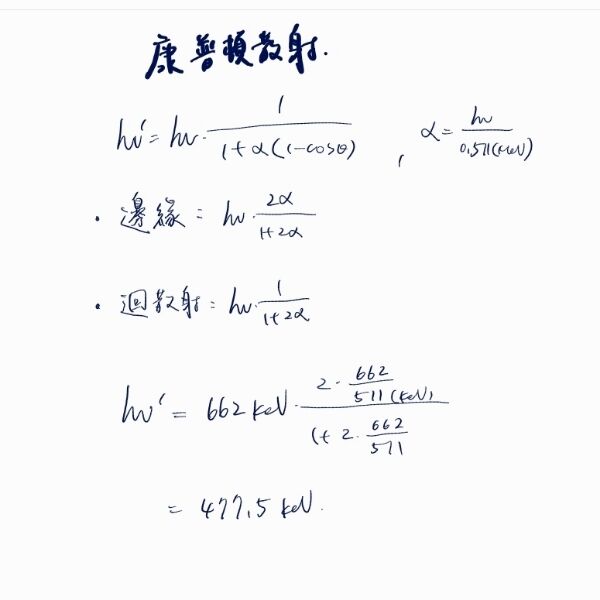 康普頓散射.
hν' = hν · 1 / (1 + α(1 - cosθ)) , α = hν / 0.511(MeV)
· 邊緣 : hν · 2α / (1 + 2α)
· 迴散射 : hν · 1 / (1 + 2α)
hν' = 662 keV · (2 · 662 / 511 (keV)) / (1 + 2 · 662 / 511)
= 477.5 keV.